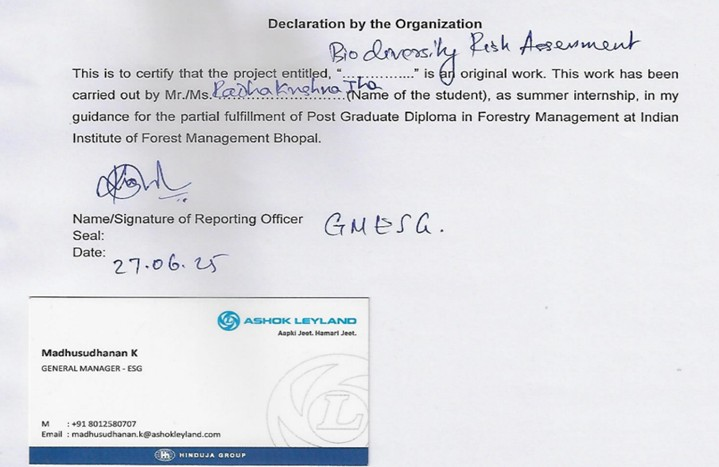 Declaration by the Organization
Biodiversity Risk Assessment
This is to certify that the project entitled, “................” is an original work. This work has been
carried out by Mr./Ms. Radhakrishna Jha (Name of the student), as summer internship, in my
guidance for the partial fulfillment of Post Graduate Diploma in Forestry Management at Indian
Institute of Forest Management Bhopal.
Name/Signature of Reporting Officer
GM ESG.
Seal:
Date:
27.06.25
ASHOK LEYLAND
Aapki Jeet. Hamari Jeet.
Madhusudhanan K
GENERAL MANAGER - ESG
M : +91 8012580707
Email : madhusudhanan.k@ashokleyland.com
HINDUJA GROUP